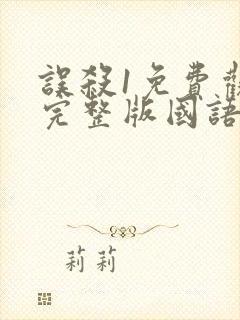 誤殺1免費
完整版國語
莉莉